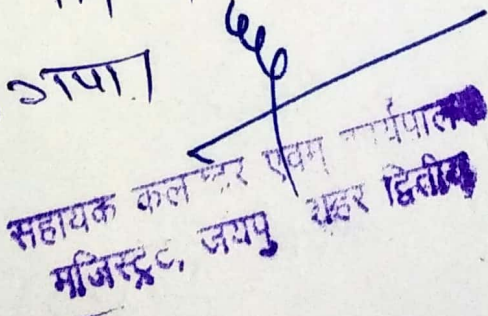 गया।
सहायक कलक्टर एवम् कार्यपालक
मजिस्ट्रेट, जयपुर शहर द्वितीय